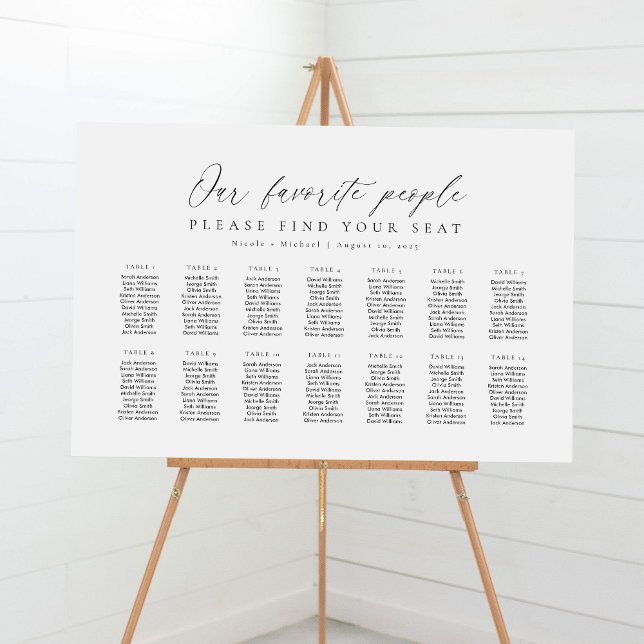 Our favorite people
PLEASE FIND YOUR SEAT
Nicole + Michael | August 10, 2025
TABLE 1
Sarah Anderson
Liana Williams
Seth Williams
Kristen Anderson
Oliver Anderson
David Williams
Michelle Smith
Jeorge Smith
Olivia Smith
Jack Anderson
TABLE 2
Michelle Smith
Jeorge Smith
Olivia Smith
Kristen Anderson
Oliver Anderson
David Williams
Sarah Anderson
Liana Williams
Seth Williams
Jack Anderson
TABLE 3
Jack Anderson
Sarah Anderson
Liana Williams
Seth Williams
David Williams
Michelle Smith
Jeorge Smith
Olivia Smith
Kristen Anderson
Oliver Anderson
TABLE 4
David Williams
Michelle Smith
Jeorge Smith
Olivia Smith
Jack Anderson
Sarah Anderson
Liana Williams
Seth Williams
Kristen Anderson
Oliver Anderson
TABLE 5
Sarah Anderson
Liana Williams
Seth Williams
Kristen Anderson
Oliver Anderson
David Williams
Michelle Smith
Jeorge Smith
Olivia Smith
Jack Anderson
TABLE 6
Michelle Smith
Jeorge Smith
Olivia Smith
Kristen Anderson
Oliver Anderson
Jack Anderson
Sarah Anderson
Liana Williams
Seth Williams
David Williams
TABLE 7
David Williams
Michelle Smith
Jeorge Smith
Olivia Smith
Kristen Anderson
Oliver Anderson
Jack Anderson
Sarah Anderson
Liana Williams
Seth Williams
TABLE 8
Jack Anderson
Sarah Anderson
Liana Williams
Seth Williams
David Williams
Michelle Smith
Jeorge Smith
Olivia Smith
Kristen Anderson
Oliver Anderson
TABLE 9
David Williams
Michelle Smith
Jeorge Smith
Olivia Smith
Jack Anderson
Sarah Anderson
Liana Williams
Seth Williams
Kristen Anderson
Oliver Anderson
TABLE 10
Sarah Anderson
Liana Williams
Seth Williams
Kristen Anderson
Oliver Anderson
David Williams
Michelle Smith
Jeorge Smith
Olivia Smith
Jack Anderson
TABLE 11
David Williams
Sarah Anderson
Liana Williams
Seth Williams
Jack Anderson
Michelle Smith
Jeorge Smith
Olivia Smith
Kristen Anderson
Oliver Anderson
TABLE 12
Michelle Smith
Jeorge Smith
Olivia Smith
Kristen Anderson
Oliver Anderson
Jack Anderson
Sarah Anderson
Liana Williams
Seth Williams
David Williams
TABLE 13
Jack Anderson
Sarah Anderson
Liana Williams
Seth Williams
David Williams
Michelle Smith
Jeorge Smith
Olivia Smith
Kristen Anderson
Oliver Anderson
TABLE 14
Sarah Anderson
Liana Williams
Seth Williams
Kristen Anderson
Oliver Anderson
David Williams
Michelle Smith
Jeorge Smith
Olivia Smith
Jack Anderson